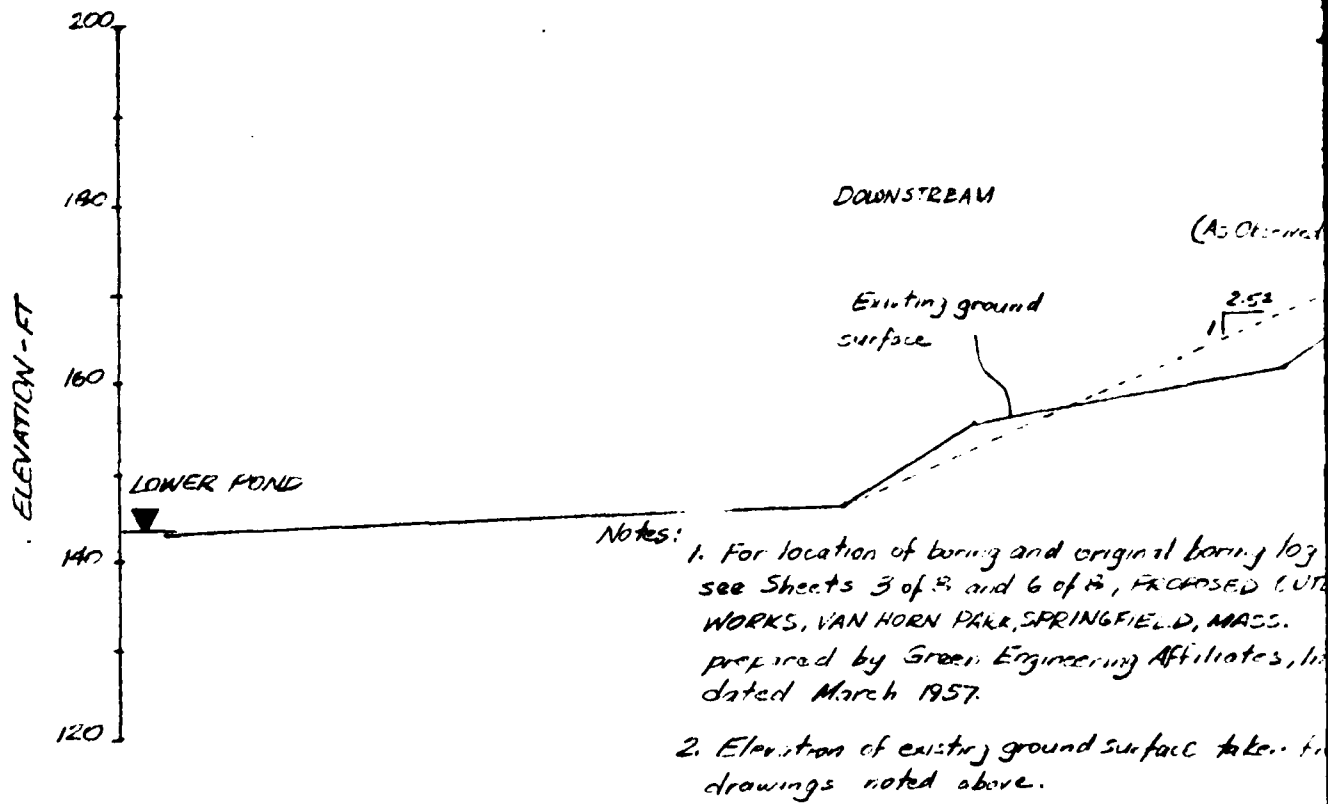 200
180
160
140
120
ELEVATION - FT
LOWER POND
DOWNSTREAM
(As Observed
2.5±
1
Existing ground
surface
Notes:
1. For location of boring and original boring log
see Sheets 3 of 8 and 6 of 8, PROPOSED
WORKS, VAN HORN PARK, SPRINGFIELD, MASS.
prepared by Green Engineering Affiliates,
dated March 1957.
2. Elevation of existing ground surface taken
drawings noted above.